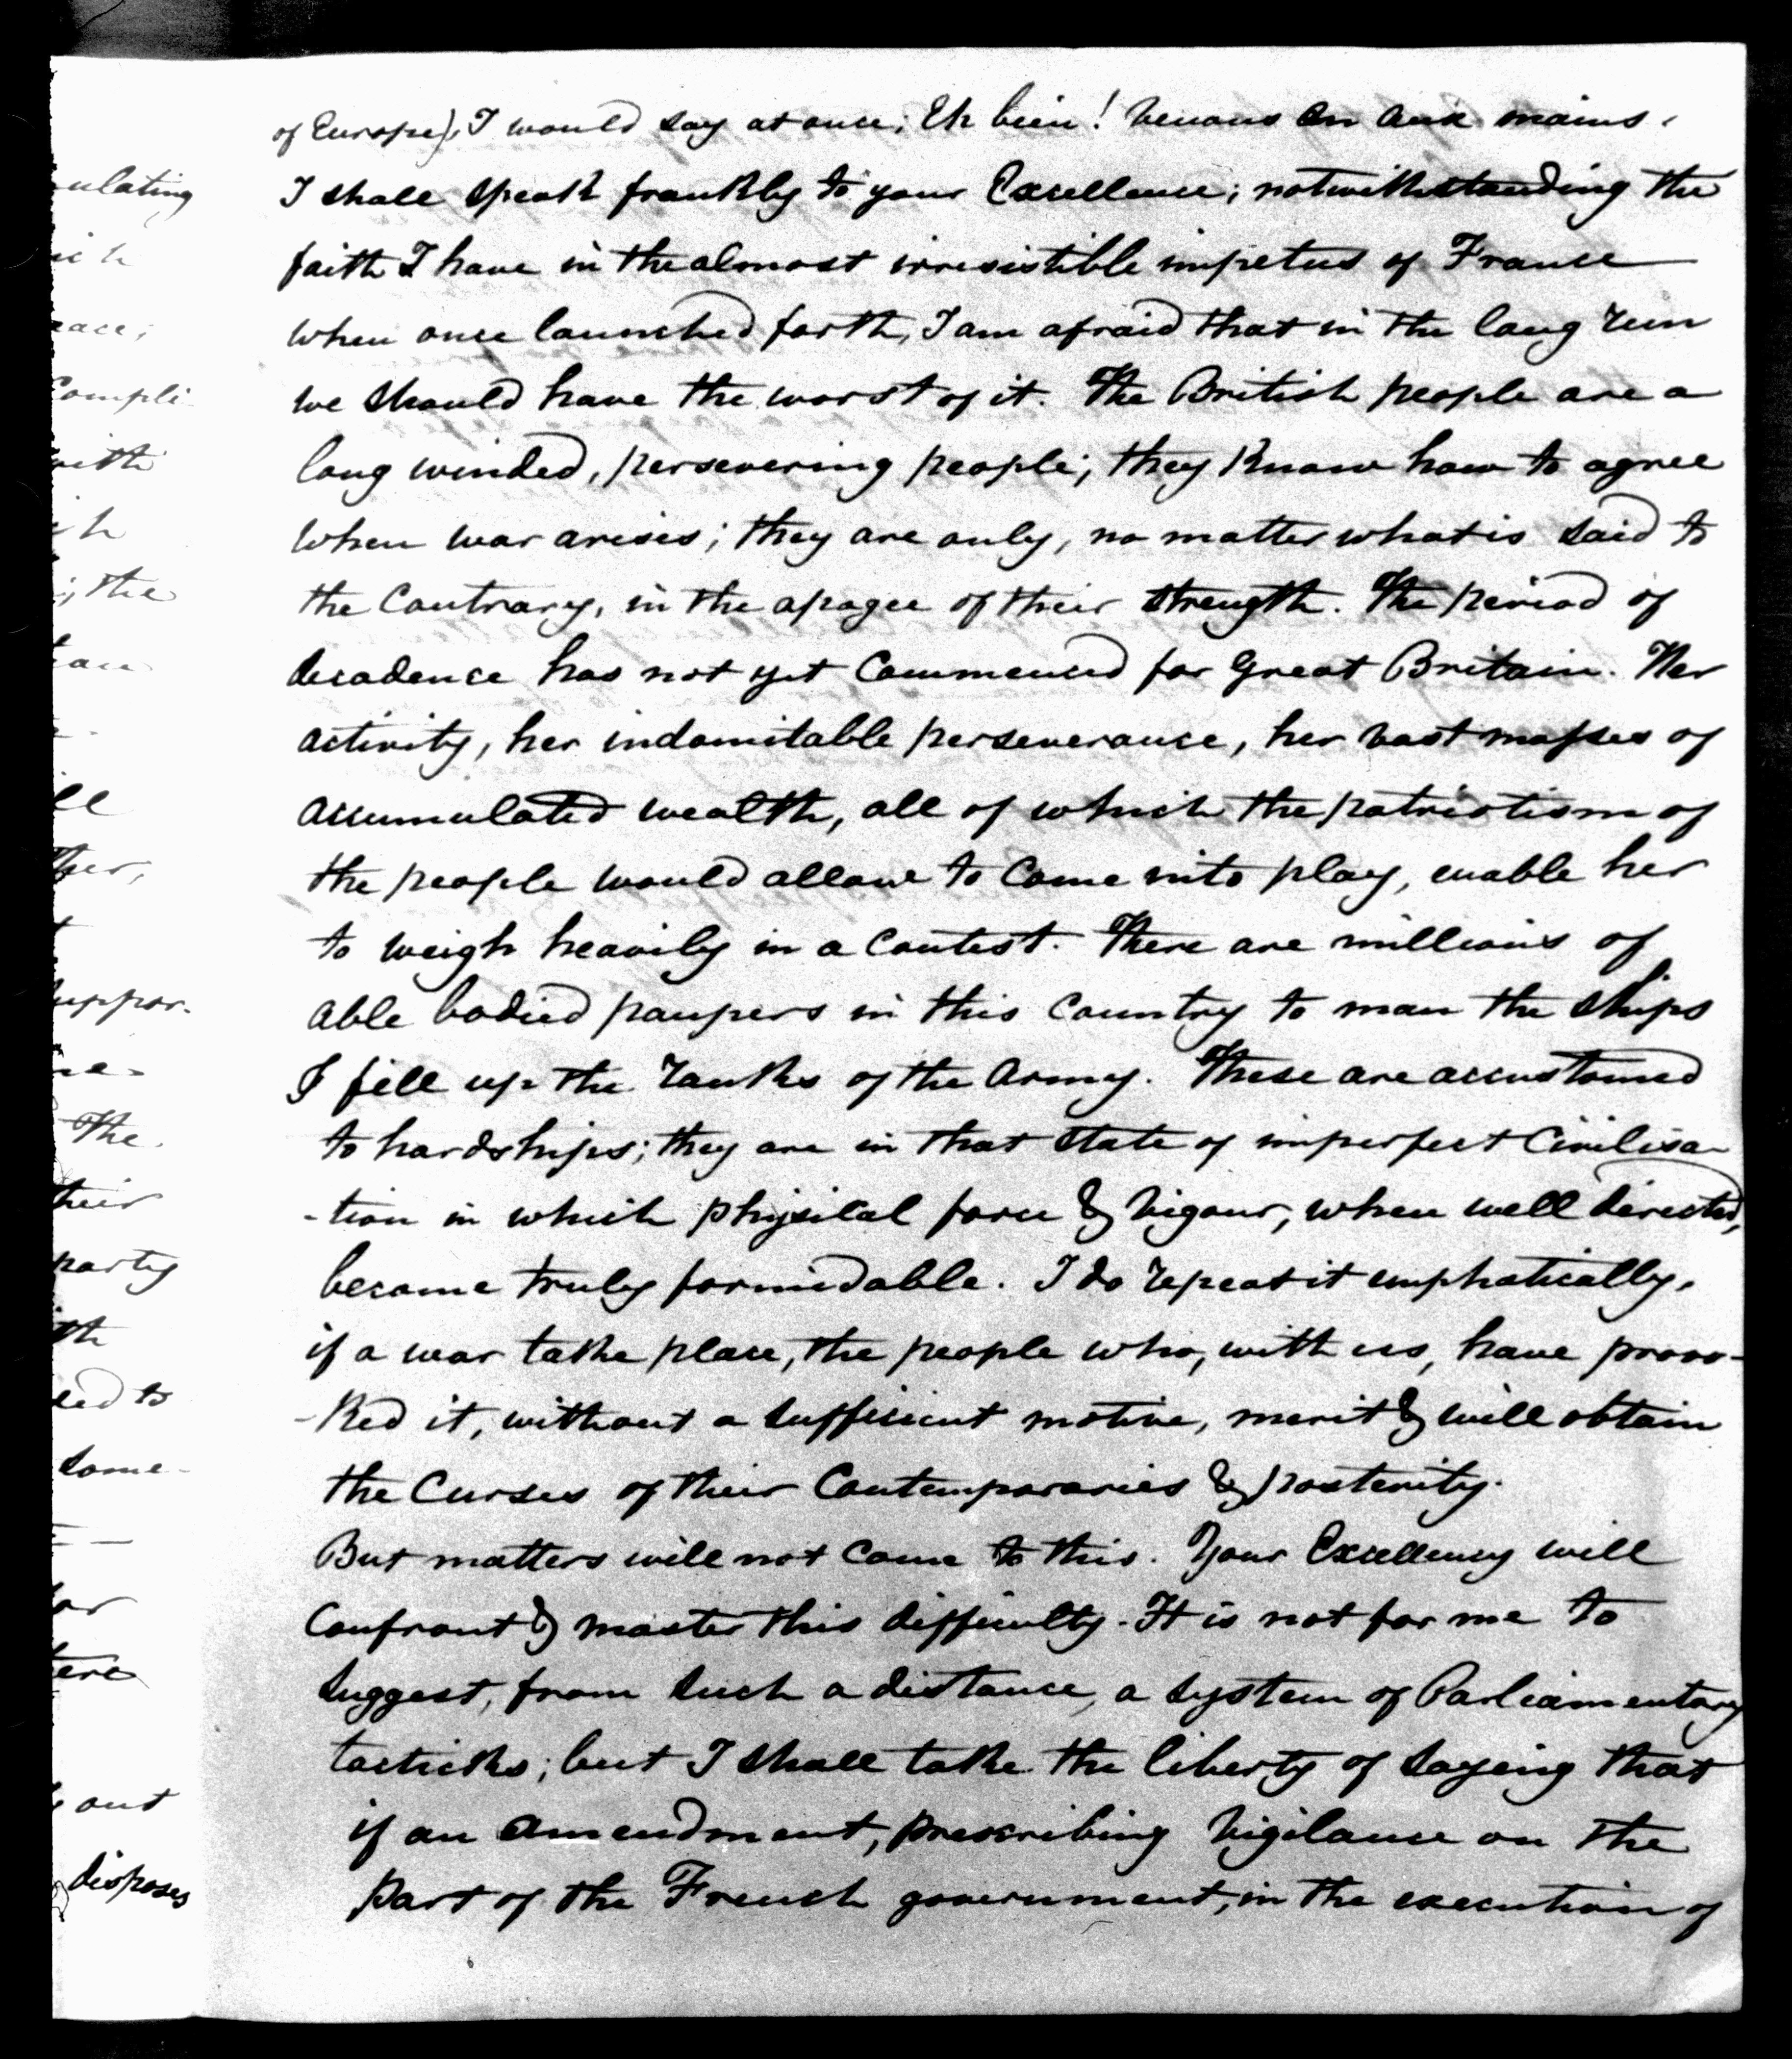 ulating
ich
race;
Compli-
with
ith
; the
ill
ther,
t
suppor-
The
their
party
ith
sed to
some-
for
here
out
disposes
of Europe), I would say at once; Eh bien! venons en aux mains.
I shall speak frankly to your Excellence; notwithstanding the
faith I have in the almost irresistible impetus of France
when once launched forth, I am afraid that in the long run
we should have the worst of it. The British people are a
long winded, persevering people; they know how to agree
when war arises; they are only, no matter what is said to
the Contrary, in the apogee of their strength. The period of
decadence has not yet Commenced for Great Britain. Her
activity, her indomitable perseverance, her vast masses of
accumulated wealth, all of which the patriotism of
the people would allow to Come into play, enable her
to weigh heavily in a Contest. There are millions of
able bodied paupers in this Country to man the ships
& fill up the ranks of the Army. These are accustomed
to hardships; they are in that state of imperfect Civilisa-
-tion in which physical force & vigour, when well directed,
become truly formidable. I do repeat it emphatically,
if a war take place, the people who, with us, have provo-
-ked it, without a sufficient motive, merit & will obtain
the Curses of their Contemporaries & posterity.
But matters will not Come to this. Your Excellency will
Confront & master this difficulty. It is not for me to
suggest, from such a distance, a system of Parliamentary
tacticks; but I shall take the liberty of saying that
if an amendment, prescribing vigilance on the
part of the French government, in the execution of